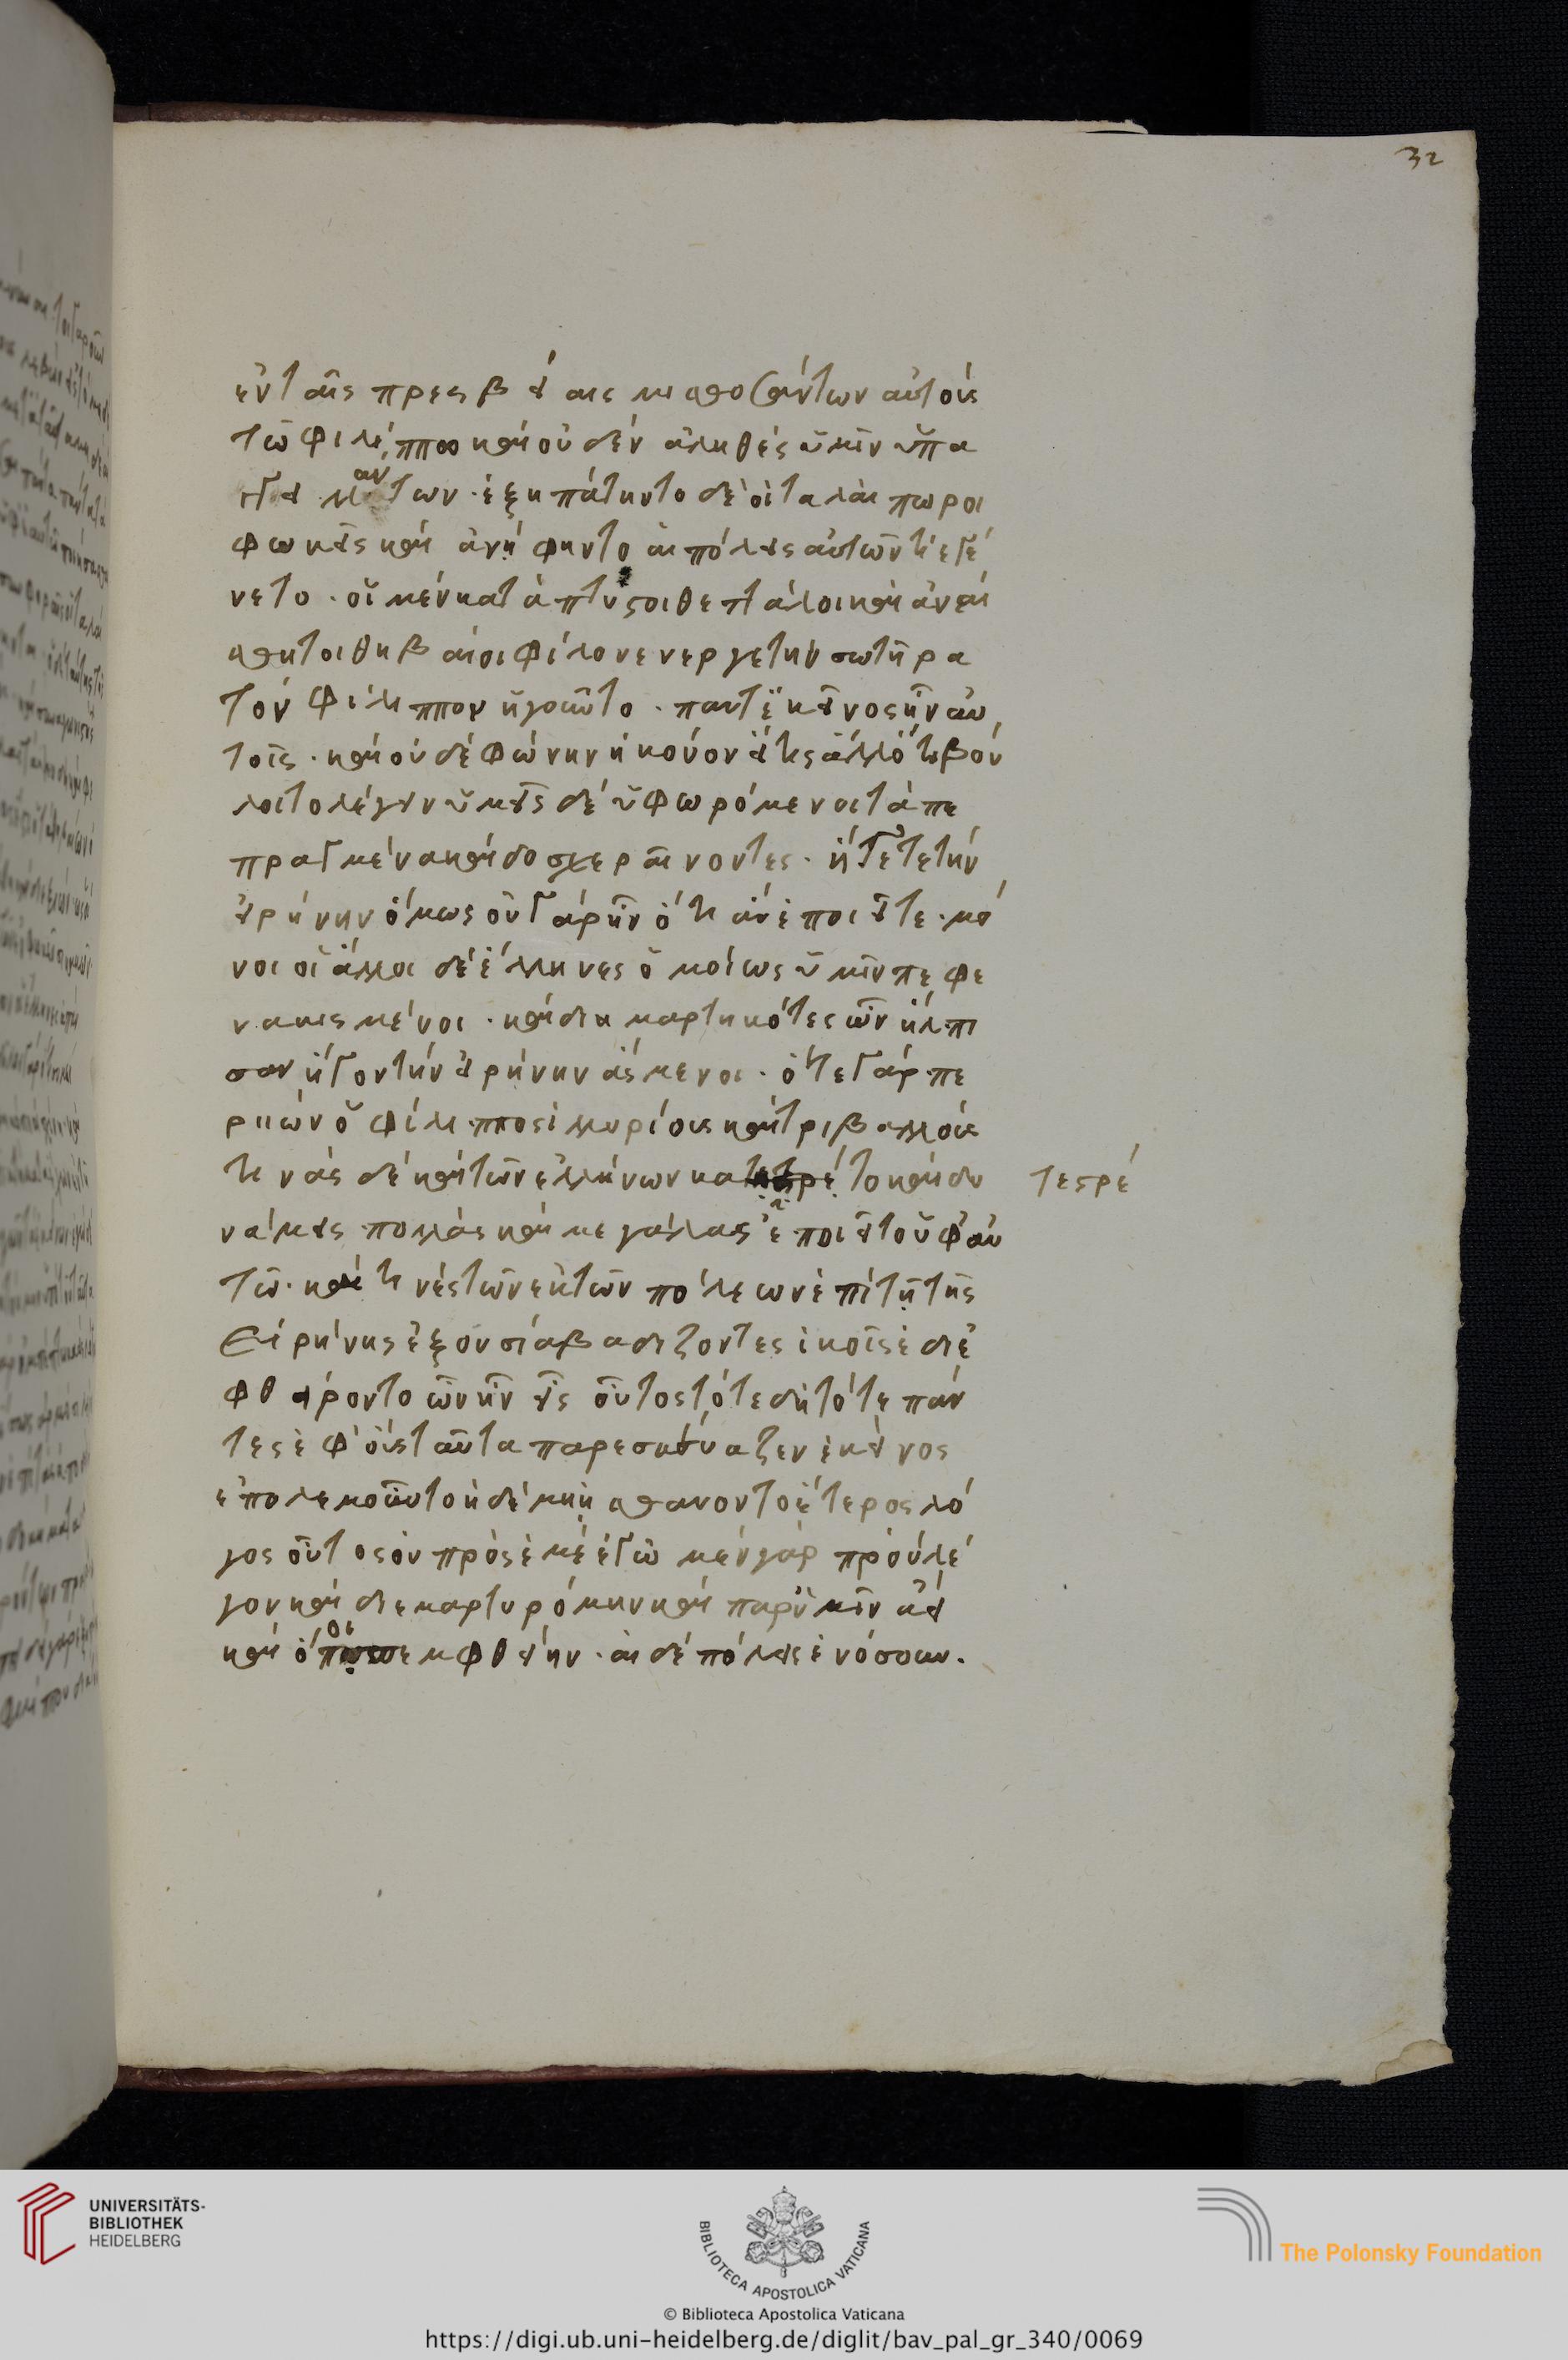 32
ἐν ταῖς πρεσβείαις μισθοσάντων αὐτοὺς
τῶ φιλίππω καὶ οὐδὲν ἀληθὲς ὑμῖν ὑπα
γγειλάντων · ἐξηπάτηντο δὲ οἱ ταλαίπωροι
φωκεῖς καὶ ἀνήφηντο αἱ πόλεις αὐτῶν τί ἐγέ
νετο · οἱ μὲν κατάπτυστοι θετταλοι καὶ ἀναί
σθητοι θηβαίοι φίλον ενεργετην σωτῆρα
τὸν φίλιππον ἡγοῦντο · παντ ἐκεῖνος ἦν αὐ
τοῖς · καὶ οὐδὲ φώνην ἤκουον εἴ τις ἄλλό τι βού
λοιτο λέγειν ὑμεῖς δὲ ὑφωρόμενοι τὰ πε
πραγμένα καὶ δοσχεραίνοντες · ἤγετε τὴν
εἰρήνην ὅμως οὐ γάρ ἦν ὅ τι ἂν ἐποιεῖτε · μό
νοι οἱ ἄλλοι δὲ ἕλληνες ὁμοίως ὑμῖν πεφε
νακισμένοι · καὶ διημαρτηκότες ὧν ἤλπι
σαν ἤγον τὴν εἰρήνην ἄσμενοι · ὅτε γάρ πε
ριιὼν ὁ φίλιππος ἰλλυρίοις καὶ τριβαλλοὺς
τινὰς δὲ καὶ τῶν ἑλλήνων κατετρέτο καὶ δυ τεσρέ
νάμεις πολλὰς καὶ μεγάλας ἐποιεῖτο ὑφ αὑ
τῶ · καὶ τινὲς τῶν ἐκ τῶν πόλεων ἐπὶ τῆ τῆς
Εἰρήνης ἐξουσία βαδιζοντες ἐκοῖσε διε
φθείροντο ὧν ἦν εἷς οὗτος τότε δὴ τότε πάν
τες ἐφ οὓς ταῦτα παρεσκεύαζεν ἐκεῖνος
ἐπολεμοῦντο ἠ δὲ μὴ ἠσθανοντο ἕτερος λό
γος οὗτος οὐ πρὸς ἐμὲ ἐγὼ μὲν γὰρ προύλε
γον καὶ διεμαρτυρόμην καὶ παρ ὑμῖν αἰεὶ
καὶ ὅποι πεμφθείην · αἱ δὲ πόλεις ἐνόσουν.
UNIVERSITÄTS-
BIBLIOTHEK
HEIDELBERG
BIBLIOTECA APOSTOLICA VATICANA
The Polonsky Foundation
© Biblioteca Apostolica Vaticana
https://digi.ub.uni-heidelberg.de/diglit/bav_pal_gr_340/0069